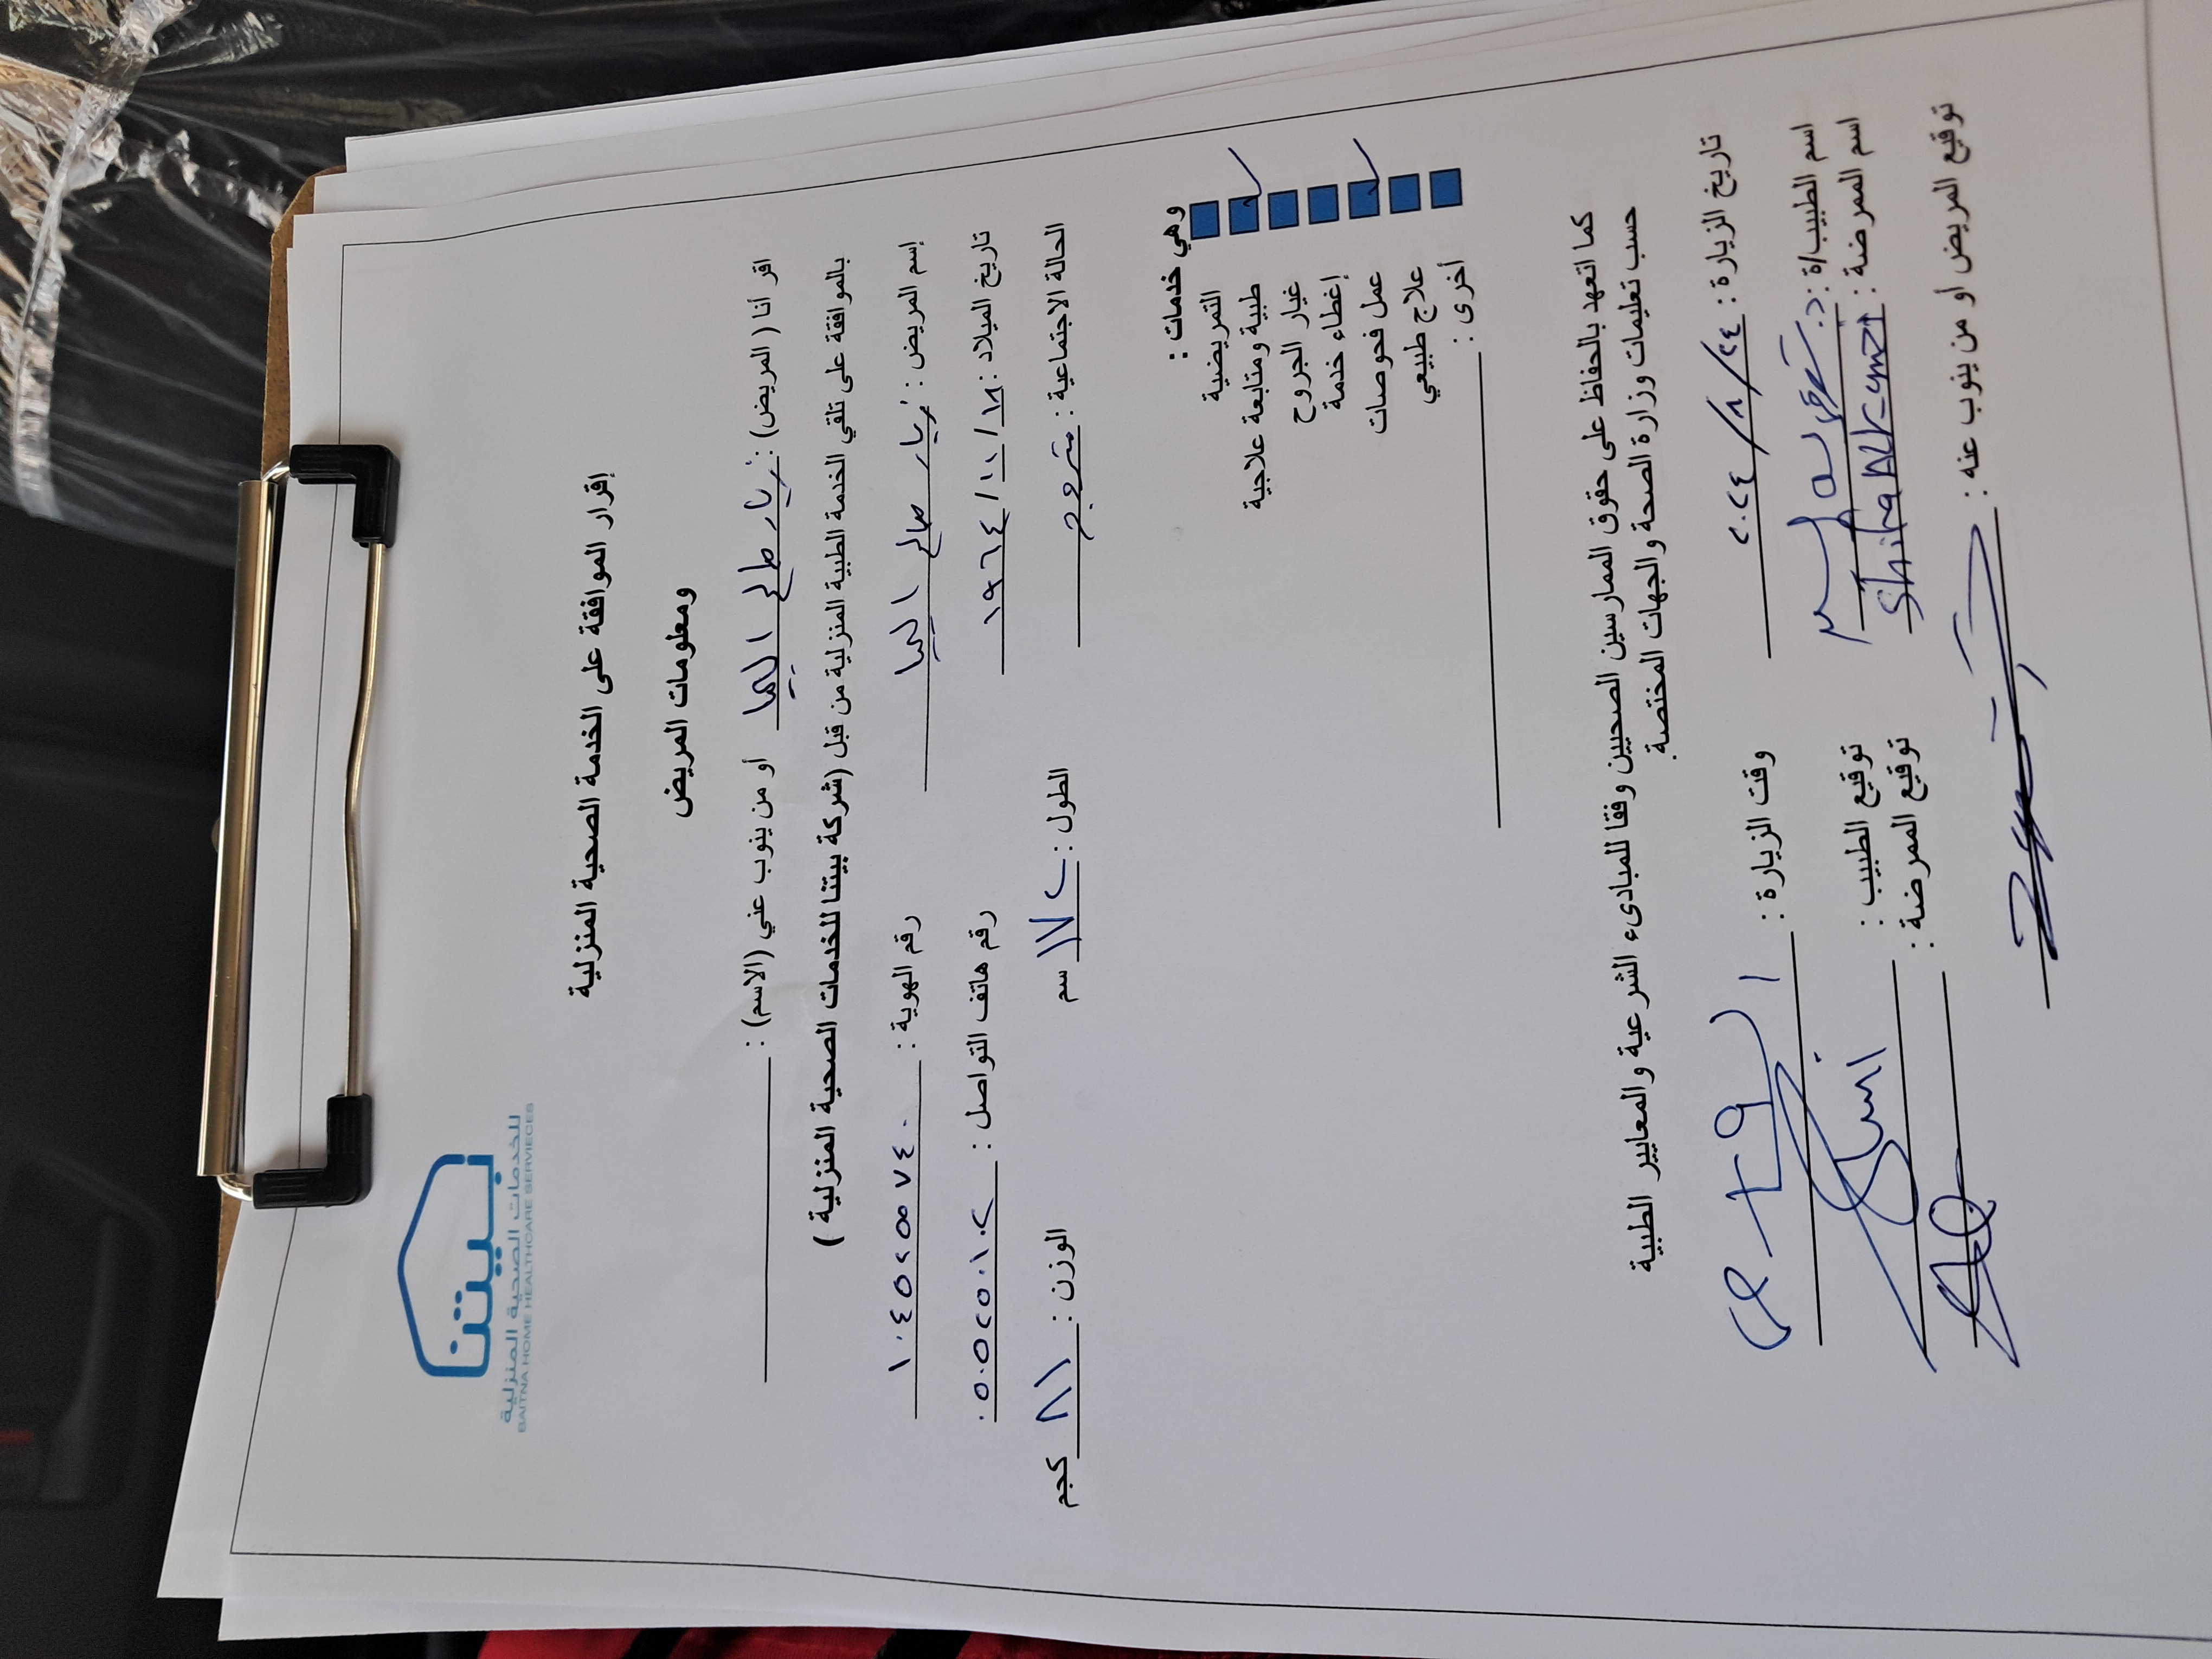 بيتنا
للخدمات الصحية المنزلية
BAITNA HOME HEALTHCARE SERVIECES
إقرار الموافقة على الخدمة الصحية المنزلية
ومعلومات المريض
اقر أنا ( المريض) : صالح أو من ينوب عني (الاسم) :
بالموافقة على تلقي الخدمة الطبية المنزلية من قبل (شركة بيتنا للخدمات الصحية المنزلية )
إسم المريض : صالح رقم الهوية : ١٠٤٥٢٥٥٧٤٠
تاريخ الميلاد : ١٩٦٤/١١/ رقم هاتف التواصل : ٠٥٠٥٢٥٠١٠٢
الحالة الاجتماعية : الطول : ١٧٢ سم الوزن : ٨١ كجم
وهي خدمات :
التمريضية
طبية ومتابعة علاجية
غيار الجروح
إغطاء خدمة
عمل فحوصات
علاج طبيعي
أخرى :
كما اتعهد بالحفاظ على حقوق الممارسين الصحيين وفقا للمبادىء الشرعية والمعايير الطبية
حسب تعليمات وزارة الصحة والجهات المختصة.
تاريخ الزيارة : ٢٠٢٤/٨/٢٤ وقت الزيارة :
اسم الطبيب/ة : د. توقيع الطبيب :
اسم المرضة : توقيع الممرضة :
توقيع المريض او من ينوب عنه :